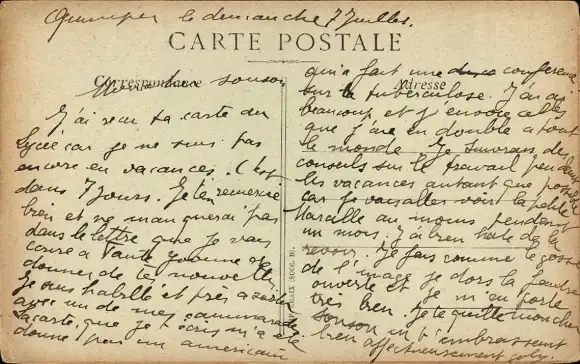 Quimper le dimanche 7 Juillet.
CARTE POSTALE
Correspondance
Adresse
Mon cher tonton
J'ai reçu ta carte au
lycée car je ne suis pas
encore en vacances. C'est
dans 7 jours. Je t'en remercie
bien et ne manquerai pas
dans la lettre que je vais
écrire à Tante Yvonne de
donner de tes nouvelles.
Je suis habillé et prêt à sortir
avec un de mes camarades
la carte que je t'écris m'a été
donné par un americain
qui a fait une conférence
sur la tuberculose. J'en ai
beaucoup et j'envoie celles
que j'ai en double à tout
le monde. Je suivrai tes
conseils sur le travail pendant
les vacances autant que possible
car je vais aller voir la petite
au moins pendant
un mois. J'ai bien hâte de la
revoir. Je fais comme le gosse
de l'image je dors la fenêtre
ouverte et je m'en porte
très bien. Je te quitte mon cher
tonton en t'embrassant
bien affectueusement